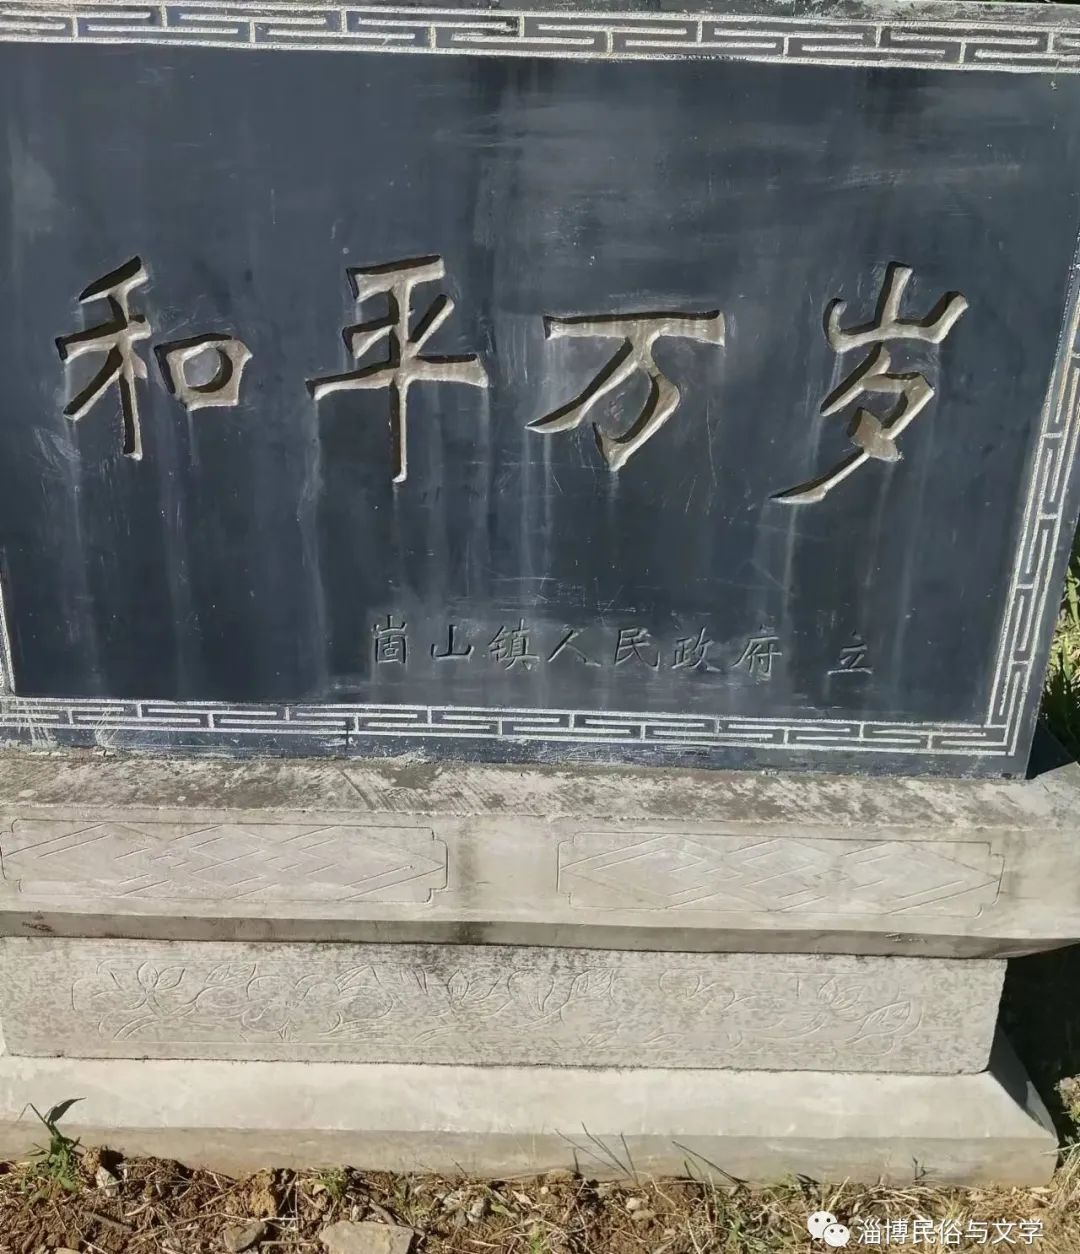 和平万岁
崮山镇人民政府 立
淄博民俗与文学